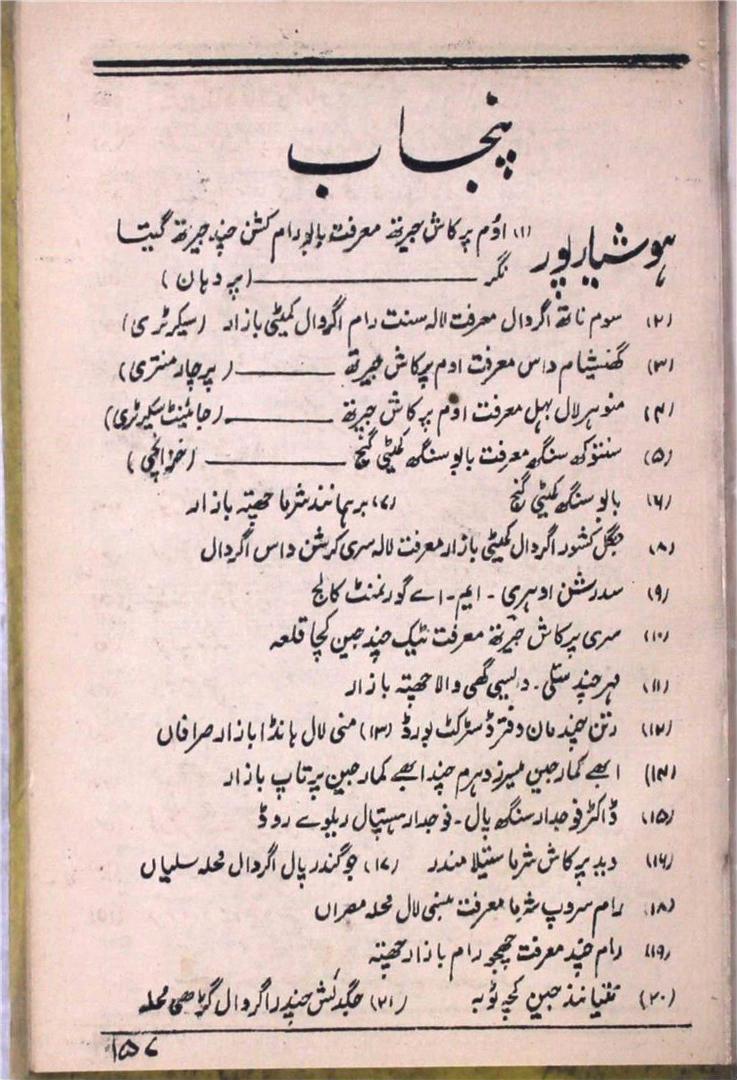 پنجاب
ہوشیارپور (۱) اوم پرکاش جیرتھ معرفت بابو رام کشن چند جیرتھ گیتا
نگر ــــــــ (پردہان)
(۲) سوم ناتھ اگروال معرفت لالہ سنت رام اگروال کمیٹی بازار (سیکرٹری)
(۳) گھنشیام داس معرفت اوم پرکاش جیرتھ ــــــــ (پرچار منتری)
(۴) منوہر لال بہل معرفت اوم پرکاش جیرتھ ــــــــ (جائینٹ سیکرٹری)
(۵) سنتوکھ سنگھ معرفت بابو سنگھ کمیٹی گنج ــــــــ (خزانچی)
(۶) بابو سنگھ کمیٹی گنج (۷) برہمانند شرما چھپتہ بازار
(۸) جگل کشور اگروال کمیٹی بازار معرفت لالہ سری کرشن داس اگروال
(۹) سدرشن اوہری ۔ ایم ۔ اے گورنمنٹ کالج
(۱۰) سری پرکاش جیرتھ معرفت ٹیک چند جین کچا قلعہ
(۱۱) مہر چند ۔ دیسی گھی والا چھپتہ بازار
(۱۲) رتن چند مان دفتر ڈسٹرکٹ بورڈ (۱۳) منی لال ہانڈا بازار صرافاں
(۱۴) ابھے کمار جین میسرز دہرم چند ابھے کمار جین پرتاپ بازار
(۱۵) ڈاکٹر فوجدار سنگھ پال ۔ فوجدار ہسپتال ریلوے روڈ
(۱۶) دید پرکاش شرما ستیلا مندر (۱۷) جوگندر پال اگروال محلہ سلیاں
(۱۸) رام سروپ شرما معرفت بنسی لال محلہ مصراں
(۱۹) رام چند معرفت چھجو رام بازار چھپتہ
(۲۰) نتیانند جین کچہ ٹوبہ (۲۱) جگدیش چندر اگروال گڑھی محلہ
۱۵۷